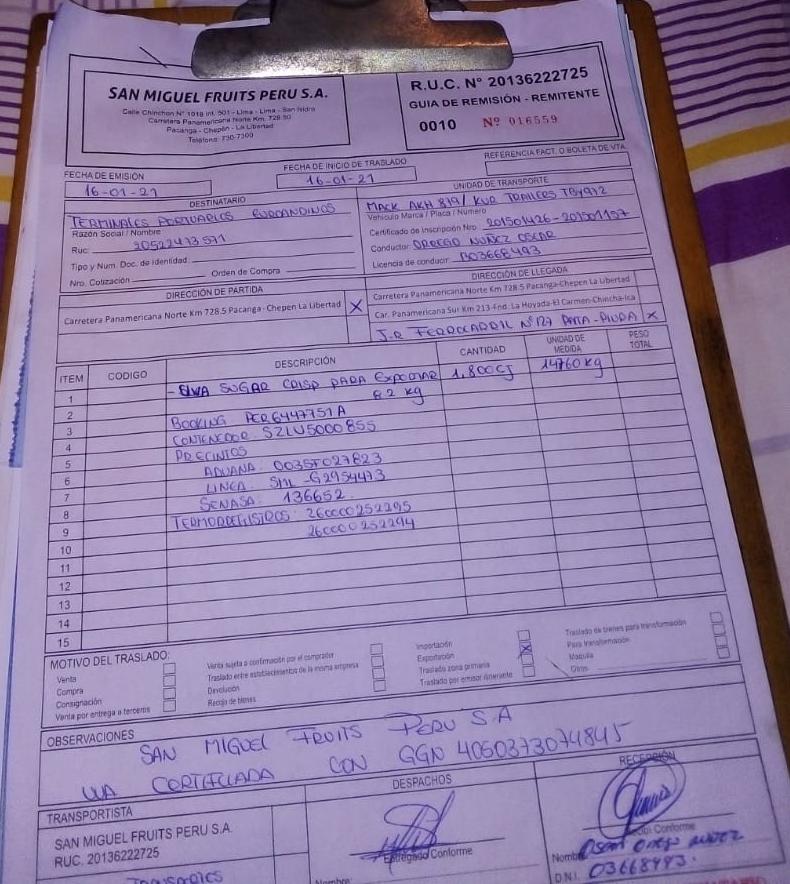 SAN MIGUEL FRUITS PERU S.A.
Calle Chinchon N° 1018 Int. 501 - Lima - Lima - San Isidro
Carretera Panamericana Norte Km. 728.50
Pacanga - Chepén - La Libertad
Teléfono: 730-7300
R.U.C. N° 20136222725
GUIA DE REMISIÓN - REMITENTE
0010 Nº 016559
FECHA DE EMISIÓN
16-01-21
FECHA DE INICIO DE TRASLADO
16-01-21
REFERENCIA FACT. O BOLETA DE VTA.
DESTINATARIO
TERMINALES PORTUARIOS EUROANDINOS
Razón Social / Nombre
Ruc: 20522473571
Tipo y Num. Doc. de Identidad:
Nro. Cotización Orden de Compra
UNIDAD DE TRANSPORTE
MACK AKH 819/ KUR TRAILERS TBY972
Vehículo Marca / Placa / Numero
Certificado de Inscripción Nro. 201501426-201501157
Conductor ORREGO NUÑEZ OSCAR
Licencia de conducir B03668493
DIRECCIÓN DE PARTIDA
Carretera Panamericana Norte Km 728.5 Pacanga-Chepen La Libertad X
DIRECCIÓN DE LLEGADA
Carretera Panamericana Norte Km 728.5 Pacanga-Chepen La Libertad
Car. Panamericana Sur Km 213-Fnd. La Hoyada-El Carmen-Chincha-Ica
J.R FERROCARRIL N°127 PAITA-PIURA X
ITEM CODIGO DESCRIPCIÓN CANTIDAD UNIDAD DE MEDIDA PESO TOTAL
1 - UVA SUGAR CRISP PARA EXPORTAR 1,800CJ 14760 kg
8.2 kg
2 BOOKING PER6447751A
3 CONTENEDOR: SZLU5000855
4 PRECINTOS
5 ADUANA: 0035F027823
6 LINEA: SML-G2954473
7 SENASA: 136652
8 TERMORREGISTROS: 260000252295
9 260000252294
10
11
12
13
14
15
MOTIVO DEL TRASLADO:
Venta
Compra
Consignación
Venta por entrega a terceros
Venta sujeta a confirmación por el comprador
Traslado entre establecimientos de la misma empresa
Devolución
Recojo de bienes
Importación
Exportación X
Traslado zona primaria
Traslado por emisor itinerante
Traslado de bienes para transformación
Para transformación
Maquila
Otros
OBSERVACIONES
SAN MIGUEL FRUITS PERU S.A
UVA CERTIFICADA CON GGN 4050373074845
TRANSPORTISTA
SAN MIGUEL FRUITS PERU S.A.
RUC. 20136222725
TRANSPORTES
DESPACHOS
Entregado Conforme
Nombre:
RECEPCIÓN
Recibi Conforme
Nombre: Oscar Orrego Nuñez
D.N.I. 03668493.